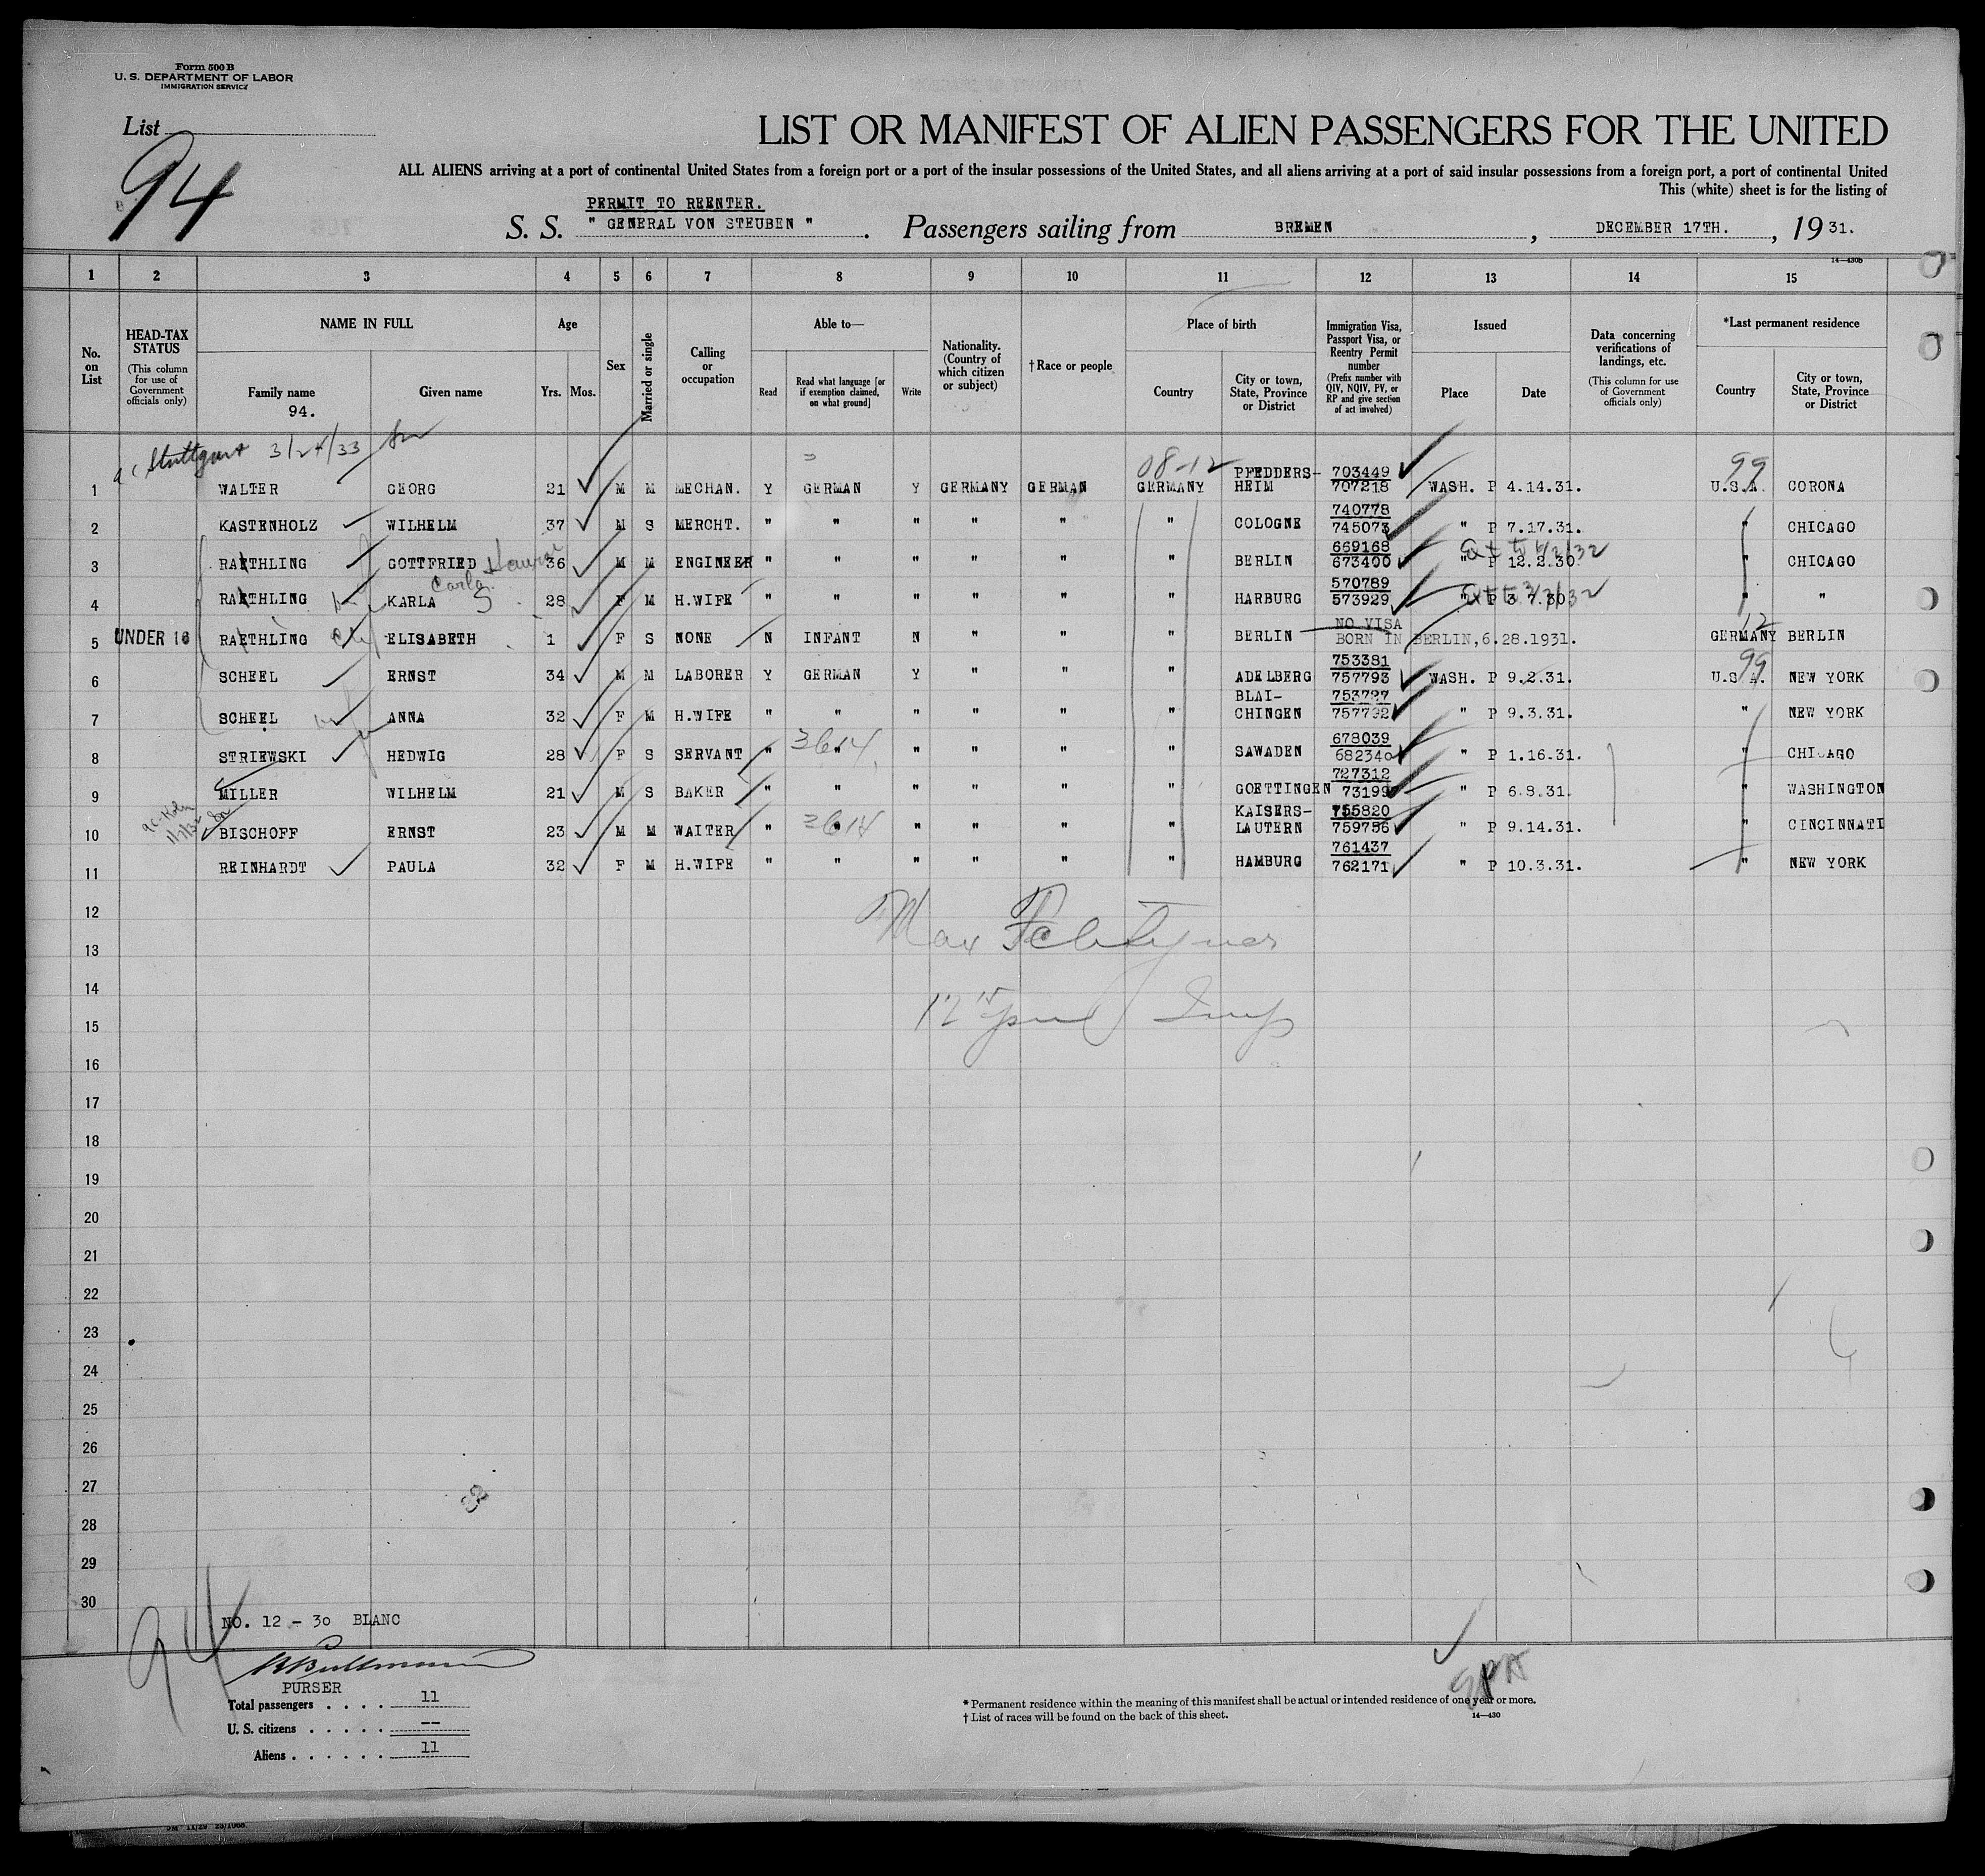 Form 500 B
U. S. DEPARTMENT OF LABOR
IMMIGRATION SERVICE
List
94
LIST OR MANIFEST OF ALIEN PASSENGERS FOR THE UNITED
ALL ALIENS arriving at a port of continental United States from a foreign port or a port of the insular possessions of the United States, and all aliens arriving at a port of said insular possessions from a foreign port, a port of continental United
This (white) sheet is for the listing of
PERMIT TO REENTER.
S. S. " GENERAL VON STEUBEN ". Passengers sailing from BREMEN, DECEMBER 17TH., 19 31.
14—430B
1 2 3 4 5 6 7 8 9 10 11 12 13 14 15
No. on List
HEAD-TAX STATUS (This column for use of Government officials only)
NAME IN FULL
Family name
94.
Given name
Age
Yrs. Mos.
Sex
Married or single
Calling or occupation
Able to—
Read
Read what language [or if exemption claimed, on what ground]
Write
Nationality. (Country of which citizen or subject)
†Race or people
Place of birth
Country
City or town, State, Province or District
Immigration Visa, Passport Visa, or Reentry Permit number (Prefix number with QIV, NQIV, PV, or RP and give section of act involved)
Issued
Place
Date
Data concerning verifications of landings, etc. (This column for use of Government officials only)
*Last permanent residence
Country
City or town, State, Province or District
Stuttgart 3/24/33
08-12
99
1 WALTER GEORG 21 M M MECHAN. Y GERMAN Y GERMANY GERMAN GERMANY PFEDDERS-HEIM 703449 707218 WASH. P 4.14.31. U.S.A. CORONA
2 KASTENHOLZ WILHELM 37 M S MERCHT. " " " " " " COLOGNE 740778 745073 " P 7.17.31. " CHICAGO
3 RAETHLING GOTTFRIED 36 M M ENGINEER " " " " " " BERLIN 669168 673400 " P 12.2.30. " CHICAGO
Carla
4 RAETHLING KARLA 28 F M H.WIFE " " " " " " HARBURG 570789 573929 " P 3.7.30. " "
5 UNDER 16 RAETHLING ELISABETH 1 F S NONE N INFANT N " " " BERLIN NO VISA BORN IN BERLIN, 6.28.1931. GERMANY BERLIN
12
99
6 SCHEEL ERNST 34 M M LABORER Y GERMAN Y " " " ADELBERG 753381 757793 WASH. P 9.2.31. U.S.A. NEW YORK
7 SCHEEL ANNA 32 F M H.WIFE " " " " " " BLAI-CHINGEN 753727 757792 " P 9.3.31. " NEW YORK
3614
8 STRIEWSKI HEDWIG 28 F S SERVANT " " " " " " SAWADEN 678039 682340 " P 1.16.31. " CHICAGO
9 MILLER WILHELM 21 M S BAKER " " " " " " GOETTINGEN 727312 73199 " P 6.8.31. " WASHINGTON
3614
10 BISCHOFF ERNST 23 M M WAITER " " " " " " KAISERS-LAUTERN 755820 759756 " P 9.14.31. " CINCINNATI
11 REINHARDT PAULA 32 F M H.WIFE " " " " " " HAMBURG 761437 762171 " P 10.3.31. " NEW YORK
12
Max
13
14
15
16
17
18
19
20
21
22
23
24
25
26
27
28
29
30
NO. 12 - 30 BLANC
94
PURSER
Total passengers . . . . 11
U. S. citizens . . . . . --
Aliens . . . . . . 11
* Permanent residence within the meaning of this manifest shall be actual or intended residence of one year or more.
† List of races will be found on the back of this sheet.
14—430